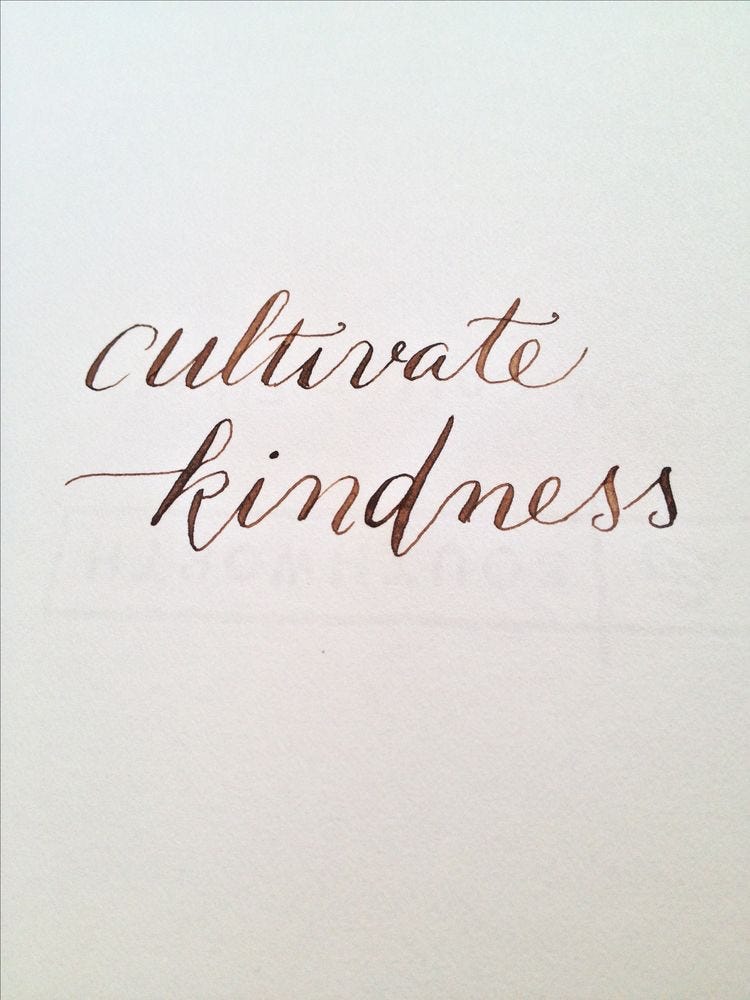 cultivate
kindness